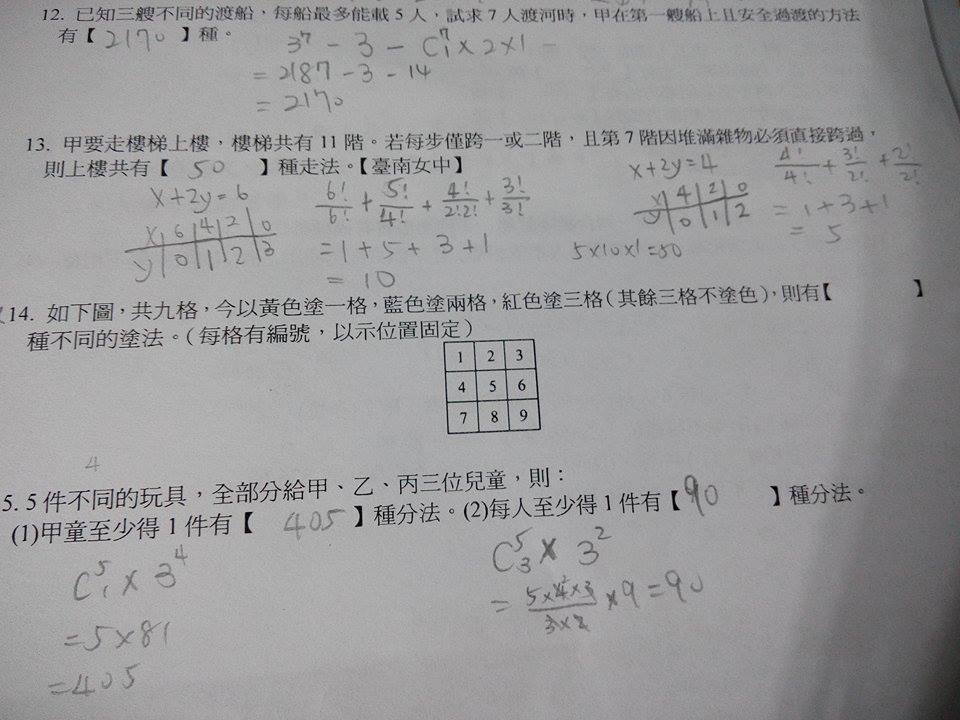 12. 已知三艘不同的渡船，每船最多能載 5 人，試求 7 人渡河時，甲在第一艘船上且安全過渡的方法
有【 2170 】種。
3⁷ − 3 − C⁷₁ × 2 × 1 −
= 2187 − 3 − 14
= 2170
13. 甲要走樓梯上樓，樓梯共有 11 階。若每步僅跨一或二階，且第 7 階因堆滿雜物必須直接跨過，
則上樓共有【 50 】種走法。【臺南女中】
x + 2y = 6
x | 6 | 4 | 2 | 0
y | 0 | 1 | 2 | 3
6!/6! + 5!/4! + 4!/2!2! + 3!/3!
= 1 + 5 + 3 + 1
= 10
x + 2y = 4
x | 4 | 2 | 0
y | 0 | 1 | 2
5×10×1=50
4!/4! + 3!/2! + 2!/2!
= 1 + 3 + 1
= 5
14. 如下圖，共九格，今以黃色塗一格，藍色塗兩格，紅色塗三格（其餘三格不塗色），則有【 】
種不同的塗法。（每格有編號，以示位置固定）
1 2 3
4 5 6
7 8 9
4
5. 5 件不同的玩具，全部分給甲、乙、丙三位兒童，則：
(1)甲童至少得 1 件有【 405 】種分法。(2)每人至少得 1 件有【 90 】種分法。
C⁵₁ × 3⁴
= 5 × 81
= 405
C⁵₃ × 3²
= 5×4×3/3×2 × 9 = 90